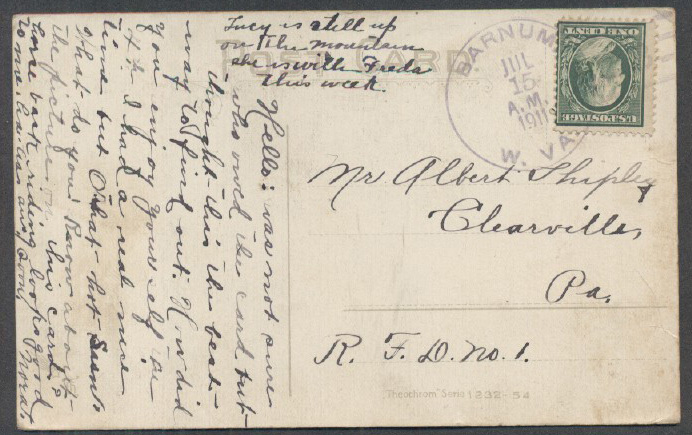 Lucy is still up
on the mountain
she is with Freda
this week.
POST CARD
BARNUM
JUL
15
A.M.
1911
W. VA.
U.S. POSTAGE
ONE CENT
Hello: was not sure
who owed the card but
thought this the best
way to find out. How did
you enjoy yourself the
4th. I had a real nice
time but O that hot
What do you know about
the picture on this card
horse back riding looks good
to me. ans. soon
Mr Albert Shipley
Clearville,
Pa.
R. F. D. No. 1.
"Theochrom" Serie 1232-54